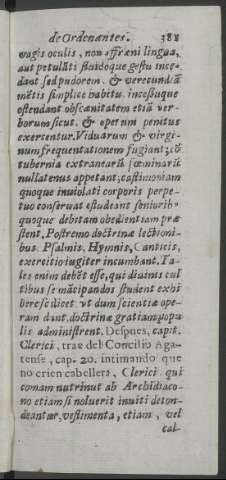 de Ordenantes. 388
vagis oculis, non effræni lingua,
aut petulāti fluidoque gestu ince-
dant sed pudorem, & verecundiā
mētis simplice habitu, incessuque
ostendant obscænitatem etiā ver-
borum sicut, & operum penitus
exercentur. Viduarum & virgi-
num frequentationem fugiant; cō
tubernia extranearū fœminarū
nullatenus appetant; castimoniam
quoque inuiolati corporis perpe-
tuo conseruat estudeant senioribꝰ
quoque debitam obedientiam præ
stent, Postremo doctrinæ lectioni-
bus. Psalmis, Hymnis, Canticis,
exercitio iugiter incumbant. Ta-
les enim debēt esse, qui diuinis cul
tibus se mācipandos student exhi
bere scilicet, vt dum scientiæ ope-
ram dant, doctrinæ gratiam popu
lis administrent. Despues, capit.
Clerici, trae del Concilio Aga-
tense, cap. 20. intimando que
no crien cabellera, Clerici qui
comam nutriunt ab Archidiaco-
no etiam si noluerit inuiti deton-
deantur, vestimenta, etiam, vel
cal-